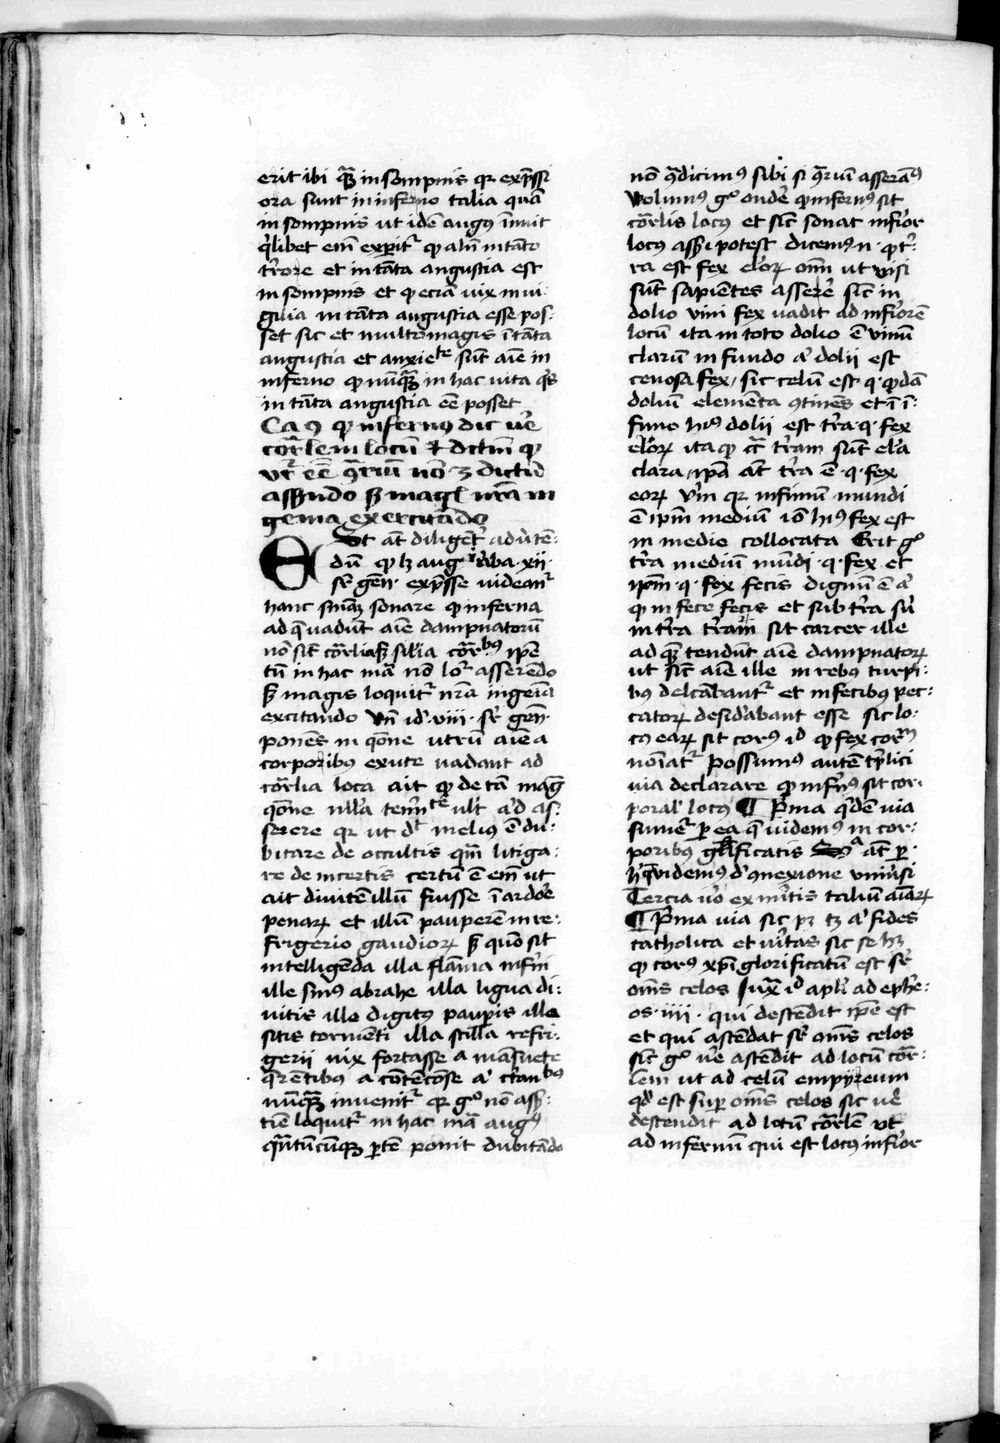 erit ibi qua̅ in sompnis qr exp̅ssi
ora sunt in inferno talia qua̅
in sompnis ut ide̅ augꝰ i̅nuit
q̅libet em̅ experit᷑ ꝙ ali̅ in ta̅to
t̅rore et in ta̅ta angustia est
in sompnis et ꝙ ecia̅ uix in ui
gilia in ta̅ta angustia esse pos-
set sic et multo magis i̅ ta̅ta
angustia et anxiete su̅t aie̅ in
inferno ꝙ nu̅qua̅ in hac uita q̅s
in ta̅ta angustia ee̅ posset
Ca 9 ꝙ infernꝰ dic ue̅
cor̅lem locu̅ & dictu̅ ꝙ
ut̅ ee̅ 9̅riu̅ no̅ ꝫ dictu̅
assendo sꝫ magꝭ n̅ra̅ in
genia exercita̅do
Est at̅ diligent᷑ adu̅te̅-
du̅ ꝙ lꝫ aug u̅ba · xii ·
sr̅ gen̅ · exp̅sse uidean᷑
hanc sn̅ia̅ sonare ꝙ inferna
ad q̅ uadu̅t aie̅ dampnatoru̅
no̅ sit̅ cor̅lia sꝫ sil̅ia cor̅bꝰ ip̅e
tn̅ in hac ma̅ no̅ lo̅r asserendo
sꝫ magis loquit᷑ n̅ra ingenia
excitando Vn̅ id̅ · viii · sr̅ gen̅ ·
ponens in qo̅ne utru̅ aie̅ a
corporibus exute uadant ad
cor̅lia loca ait ꝙ de ta̅ mag̅
qo̅ne nil̅a tem̅te ult̅ a̅d as-
serere qr ut dt̅ melius e̅ du-
bitare de occultis qm̅ litiga-
re de incertis certu̅ e̅ em̅ ut
ait diuite̅ illu̅ fuisse i̅ ardoe̅
penarꝝ et illu̅ paupere̅ in re-
frigerio gaudiorꝝ sꝫ quo̅ sit
intelligenda illa fla̅ma infr̅ni
ille sinꝰ abrahe illa ligua di-
uitis ille digitꝰ paupis ille
sitis torme̅ti illa stilla refri-
gerii uix fortasse a ma̅suete
q̅re̅tibꝰ a co̅te̅co̅se a̅ c̅tan̅bꝰ
nu̅qua̅ inuenit᷑ qr gᵒ no̅ ass̅-
tie̅ loquit᷑ in hac ma̅ augꝰ
qn̅tu̅cu̅qꝫ p̅te̅ ponit dubita̅do
no̅ 9̅dicimꝰ sibi si 9̅riu̅ asseramꝰ
Volumꝰ gᵒ on̅de̅ ꝙ infernꝰ sit
cor̅lis locꝰ et sic̅ sonat infior̅
locꝰ ass̅i potest dicemꝰ n · ꝙ t̅-
ra est fex el̅orꝝ om̅ ut uisi
su̅t sapientes assere̅ sic̅ in
dolio uini fex uadit ad infiore̅
locu̅ ita in toto dolio e̅ uinu̅
claru̅ in fundo a̅ dolii est
cenosa fex / sic celu̅ est q · ꝙda̅
doliu̅ elementa 9tine̅s et i̅ i̅-
fimo hꝰ dolii est t̅ra · q · fex
el̅orꝝ ita ꝙ c̅t t̅ram su̅t el̅a
clara / ip̅a at̅ t̅ra e̅ · q · fex
eorꝝ u̅m qr infimu̅ mundi
e̅ ip̅m mediu̅ io̅ hꝰ fex est
in medio collocata Erit gᵒ
t̅ra mediu̅ mu̅di · q · fex et
ip̅m · q · fex fecis dignu̅ e̅ a̅
ꝙ in fece fecis et sub t̅ra siu̅
in t̅ra t̅ram̅ sit carcer ille
ad qua̅ tendu̅t aie̅ dampnatorꝝ
ut sic̅ aie̅ ille in rebus turpi-
bꝰ delc̅abant᷑ et in fecibꝰ pec-
catorꝝ desid̅abant esse sic lo-
cꝰ earꝝ sit corꝰ id̅ ꝙ fex cor̅m
noi̅at᷑ Possumus aute̅ t̅plici
uia declarare ꝙ infr̅nꝰ sit cor-
poral̅ locꝰ ¶ P̅ma q̅de̅ uia
sumet᷑ p ea q̅ uidemꝰ in cor-
poribꝰ glificatis Sᵃ at̅ p ·
h̅ q̅ uidemꝰ d̅ 9nexione uniu̅si
Tercia uo̅ ex mi̅tis taliu̅ aia̅rꝝ
¶ P̅ma uia sic pꝫ tꝫ a̅ fides
catholica et ui̅tas sic se hꝫ
ꝙ corꝰ xp̅i glorificatu̅ est sr̅
om̅s celos Jux̅ id̅ apl̅i ad ephe-
os · iiii · qui descendit ip̅e est
et qui ascendat sr̅ om̅s celos
sic̅ gᵒ ue̅ ascendit ad locu̅ cor̅-
lem ut ad celu̅ empyreum
qd̅ est sup̅ om̅s celos sic ue̅
descendit ad locu̅ cor̅le̅ ut
ad infernu̅ qui est locꝰ infior̅